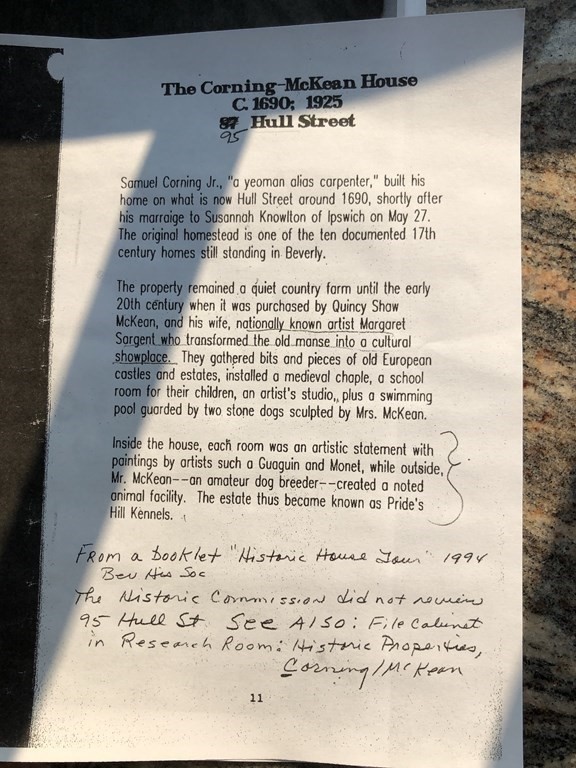 The Corning-McKean House
C. 1690; 1925
87 Hull Street
95
Samuel Corning Jr., "a yeoman alias carpenter," built his
home on what is now Hull Street around 1690, shortly after
his marraige to Susannah Knowlton of Ipswich on May 27.
The original homestead is one of the ten documented 17th
century homes still standing in Beverly.
The property remained a quiet country farm until the early
20th century when it was purchased by Quincy Shaw
McKean, and his wife, nationally known artist Margaret
Sargent who transformed the old manse into a cultural
showplace. They gathered bits and pieces of old European
castles and estates, installed a medieval chaple, a school
room for their children, an artist's studio,, plus a swimming
pool guarded by two stone dogs sculpted by Mrs. McKean.
Inside the house, each room was an artistic statement with
paintings by artists such a Guaguin and Monet, while outside,
Mr. McKean--an amateur dog breeder--created a noted
animal facility. The estate thus became known as Pride's
Hill Kennels.
From a booklet "Historic House Tour" 1994
Bev His Soc
The Historic Commission did not review
95 Hull St. See Also: File Cabinet
in Research Room: Historic Properties,
Corning/McKean
11